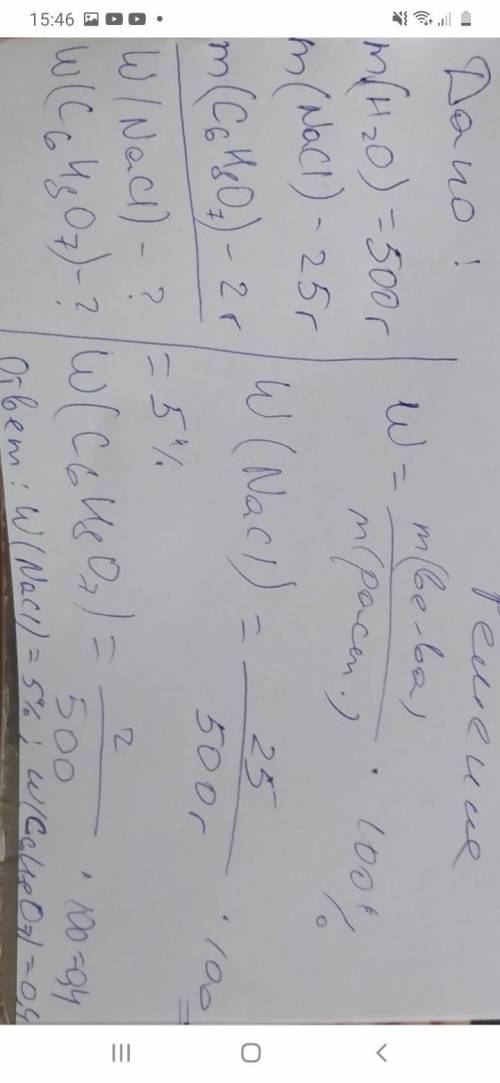 15:46
Дано:
m(H2O) = 500г
m(NaCl) - 25г
m(C6H8O7) - 2г
W(NaCl) - ?
W(C6H8O7) - ?
Решение
W = m(ве-ва) / m(раст.) · 100%
W(NaCl) = 25 / 500г · 100 =
= 5%
W(C6H8O7) = 2 / 500 · 100 = 0,4
Ответ: W(NaCl) = 5%; W(C6H8O7) = 0,4